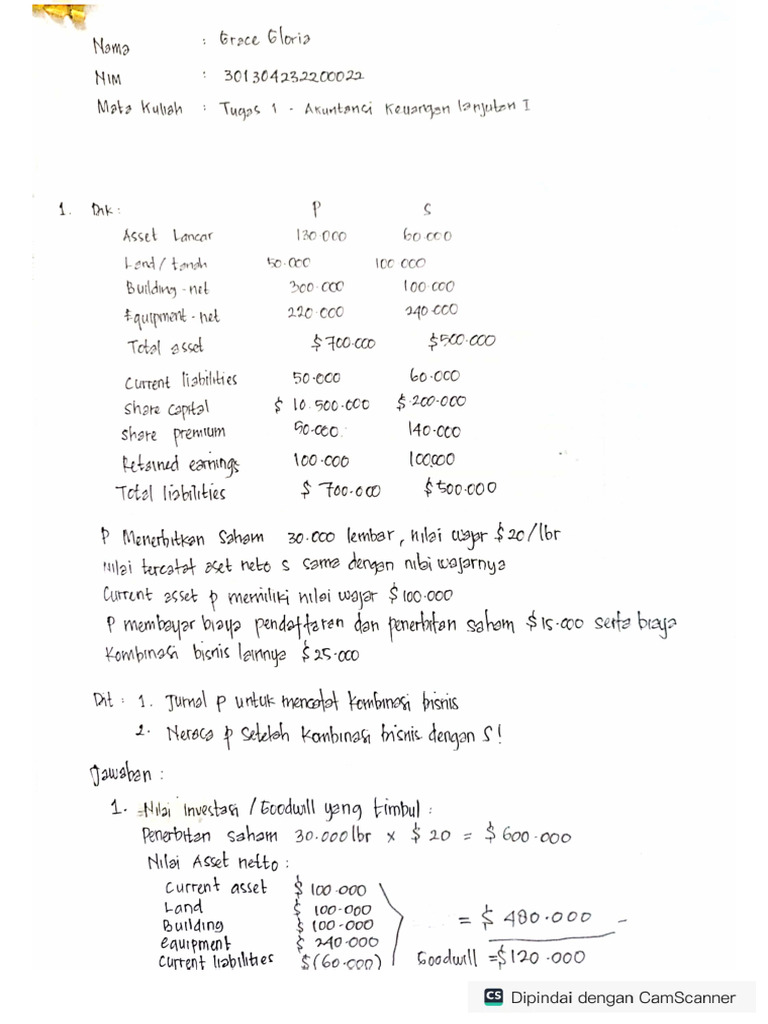 Nama : Grace Gloria
NIM : 301304232200022
Mata Kuliah : Tugas 1 - Akuntansi Keuangan lanjutan I
1. Dik : P S
Asset Lancar 130.000 60.000
Land / tanah 50.000 100 000
Building - net 300.000 100.000
Equipment - net 220.000 240.000
Total asset $ 700.000 $500.000
Current liabilities 50.000 60.000
Share capital $ 10 500.000 $ 200.000
Share premium 50.000 140.000
Retained earnings 100.000 100.000
Total liabilities $ 700.000 $ 500.000
P Menerbitkan Saham 30.000 lembar, nilai wajar $ 20/lbr
Nilai tercatat aset neto S sama dengan nilai wajarnya
Current asset P memiliki nilai wajar $ 100.000
P membayar biaya pendaftaran dan penerbitan saham $ 15.000 serta biaya
Kombinasi bisnis lainnya $ 25.000
Dit : 1. Jurnal P untuk mencatat kombinasi bisnis
2. Neraca P setelah kombinasi bisnis dengan S!
Jawaban :
1. Nilai investasi / Goodwill yang timbul :
Penerbitan saham 30.000 lbr x $ 20 = $ 600.000
Nilai Asset netto :
Current asset $ 100.000
Land $ 100.000
Building $ 100.000 = $ 480.000 -
equipment $ 240.000
Current liabilities $ (60.000) Goodwill = $ 120.000
CS Dipindai dengan CamScanner